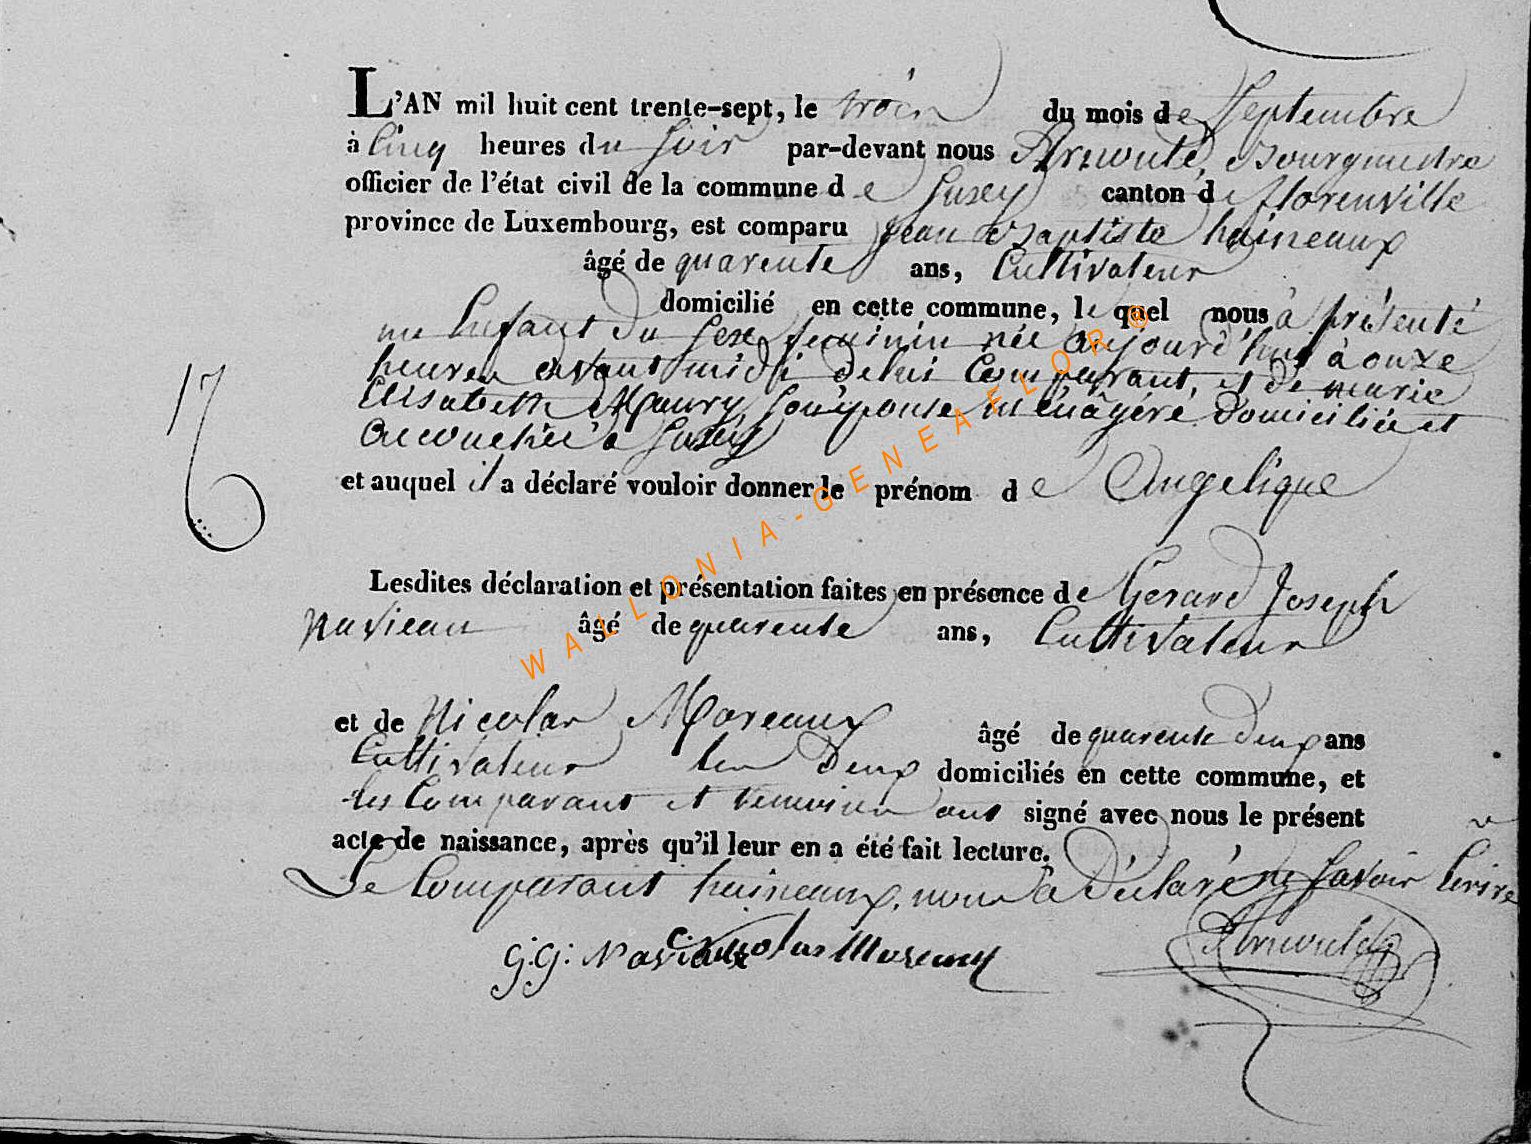 L'AN mil huit cent trente-sept, le trois du mois de Septembre
à Cinq heures du Soir par-devant nous Arnould, Bourgmestre
officier de l'état civil de la commune de Suxey canton de florenville
province de Luxembourg, est comparu Jean Baptiste haineaux
âgé de quarente ans, Cultivateur
domicilié en cette commune, lequel nous à présenté
un Enfant du Sexe feminin née aujourd'hui à onze
heures avant midi de lui Comparant, et de marie
Elisabeth Maury Son épouse ménâgéré domiciliée et
Accouchée à Suxey
et auquel il a déclaré vouloir donner le prénom de Angelique
17
6
Lesdites déclaration et présentation faites en présence de Gerard Joseph
Navieau âgé de quarente ans, Cultivateur
et de Nicolas Moreaux âgé de quarente deux ans
Cultivateur les deux domiciliés en cette commune, et
les Comparant et temoins ont signé avec nous le présent
acte de naissance, après qu'il leur en a été fait lecture.
Le Comparant haineaux, nous à déclaré ne Savoir Ecrire
G:G: Naviaux Nicolas Moreaux Arnould
WALLONIA-GENEAELOR®